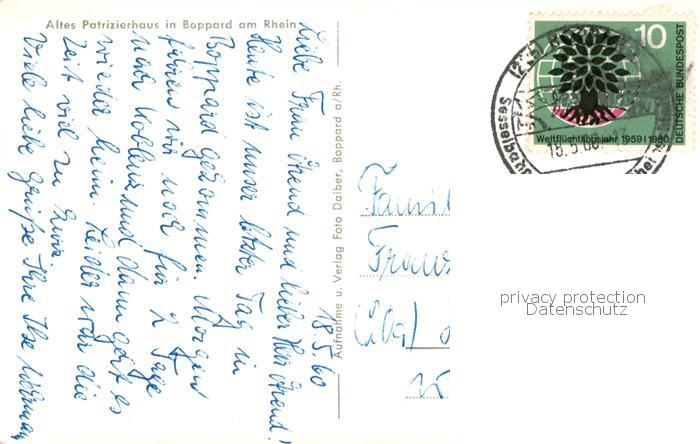 Altes Patrizierhaus in Boppard am Rhein
18.5.60
Liebe Frau Arend und lieber Herr Arend!
Heute ist unser letzter Tag in
Boppard gekommen. Morgen
fahren wir noch für 2 Tage
nach Koblenz und dann geht es
wieder heim. Leider war die
Zeit viel zu kurz.
Viele liebe Grüße Ihre Ilse
Aufnahme u. Verlag Foto Daiber, Boppard a/Rh.
10
DEUTSCHE BUNDESPOST
Weltflüchtlingsjahr 1959/1960
Sesselbahn
Famil
Franz
privacy protection
Datenschutz